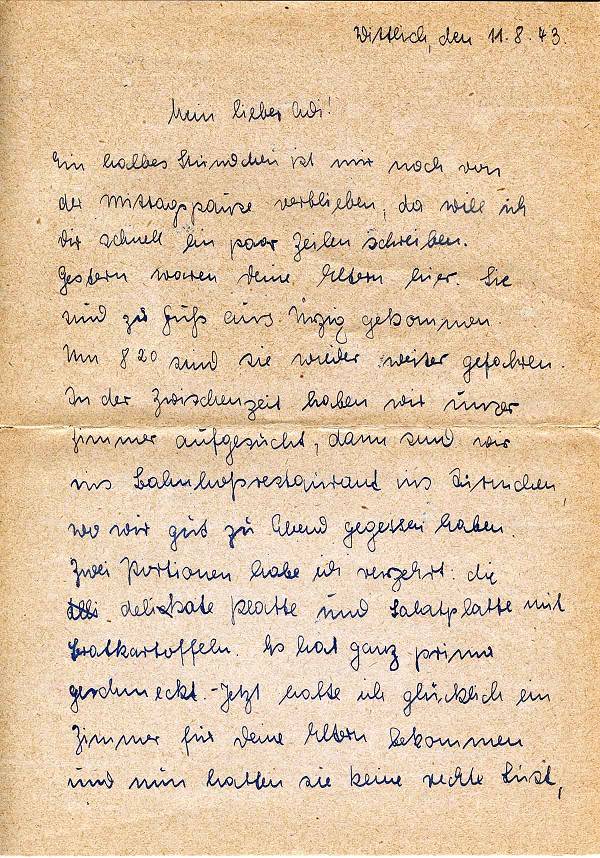 Wittlich, den 11.8.43.
Mein lieber Adi!
Ein halbes Stündchen ist mir noch von
der Mittagspause verblieben, da will ich
dir schnell ein paar Zeilen schreiben.
Gestern waren deine Eltern hier. Sie
sind zu Fuß aus Ürzig gekommen.
Um 8 20 sind sie wieder weiter gefahren.
In der Zwischenzeit haben wir unser
Zimmer aufgesucht, dann sind wir
ins Bahnhofsrestaurand ins
wo wir gut zu Abend gegessen haben.
Zwei Portionen habe ich verzehrt. die
delikate Platte und Salatplatte mit
Bratkartoffeln. Es hat ganz prima
geschmeckt. - Jetzt hatte ich glücklich ein
Zimmer für deine Eltern bekommen
und nun hatten sie keine rechte Lust,